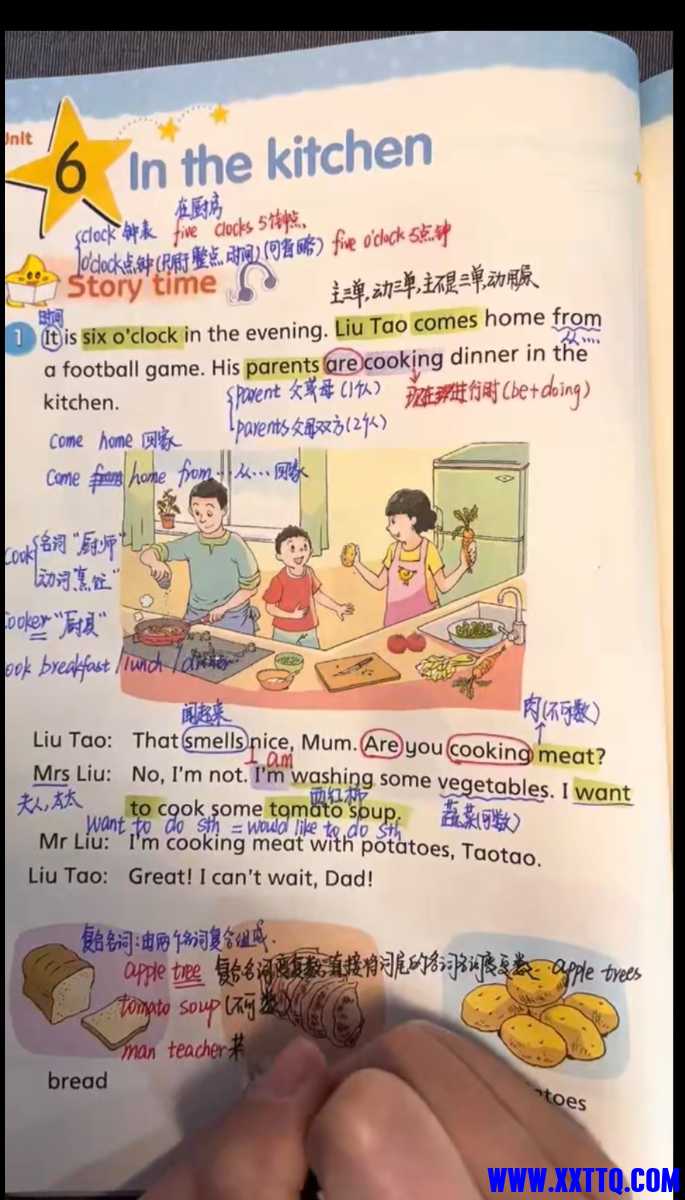 Unit
6 In the kitchen
在厨房
clock 钟表 five clocks 5个钟点
o'clock点钟(只用于整点时间)(可省略) five o'clock 5点钟
Story time
主三单,动三单,主不是三单,动用原
时间
1 It is six o'clock in the evening. Liu Tao comes home from
从....
a football game. His parents are cooking dinner in the
kitchen.
parent 父或母(1个人) 现在进行时(be+doing)
parents父母双方(2个人)
come home 回家
come home from... 从... 回家
cook 名词"厨师"
动词"烹饪"
cooker "厨具"
cook breakfast / lunch /
闻起来
肉(不可数)
Liu Tao: That smells nice, Mum. Are you cooking meat?
I am
Mrs Liu: No, I'm not. I'm washing some vegetables. I want
夫人,太太
西红柿
to cook some tomato soup.
蔬菜(可数)
want to do sth = would like to do sth
Mr Liu: I'm cooking meat with potatoes, Taotao.
Liu Tao: Great! I can't wait, Dad!
复合名词:由两个名词复合组成.
apple tree 复合名词变复数,直接将词尾的名词变复数 apple trees
tomato soup (不可数)
man teacher
bread
toes
WWW.XXTTQ.COM